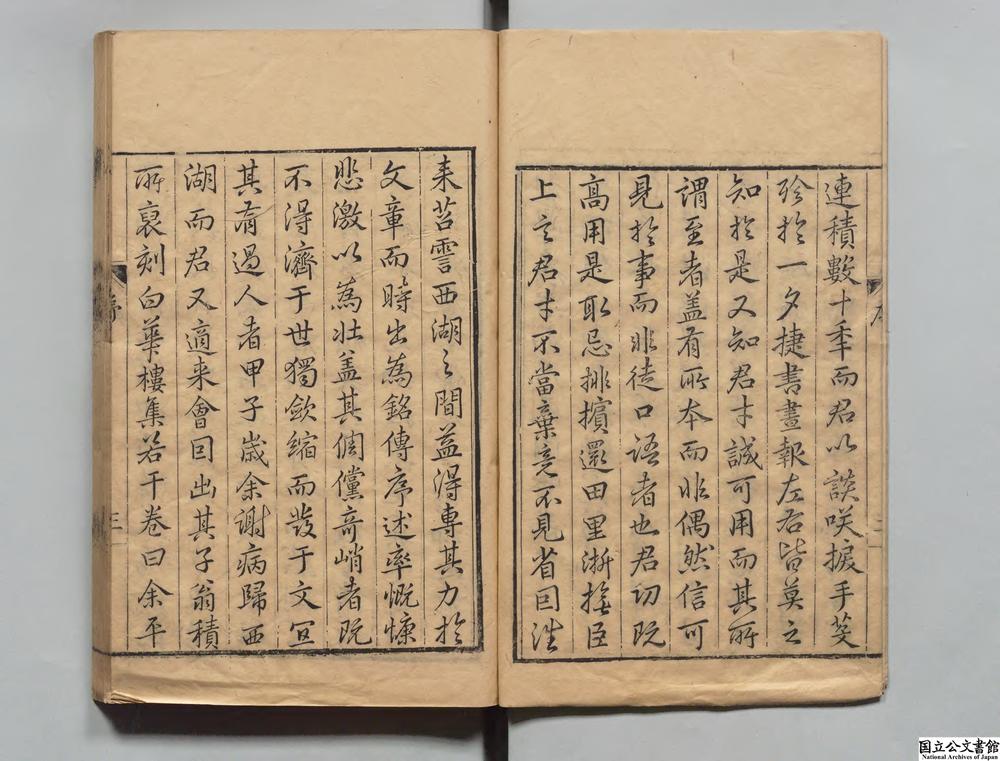 連積數十季而君以談咲掖手芟
殄於一夕捷書晝報左右皆莫之
知於是又知君才誠可用而其所
謂至者盖有所本而非偶然信可
見於事而非徒口語者也君功既
高用是取忌排擯還田里浙撫臣
上言君才不當棄竟不見省囙徃
来苕霅西湖之間益得專其力於
文章而時出為銘傳序述率慨慷
悲激以為壯盖其倜儻奇峭者既
不得濟于世獨歛縮而發于文宜
其有過人者甲子嵗余謝病歸西
湖而君又適来會囙出其子翁積
所裒刻白華樓集若干卷曰余平
序
三
国立公文書館
National Archives of Japan